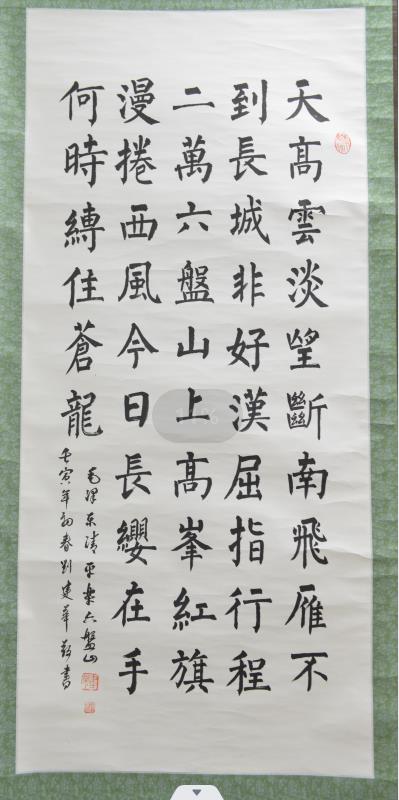 天高雲淡望斷南飛雁不
到長城非好漢屈指行程
二萬六盤山上高峯紅旗
漫捲西風今日長纓在手
何時縛住蒼龍
毛泽东清平樂六盤山
壬寅年初春刘建華敬書